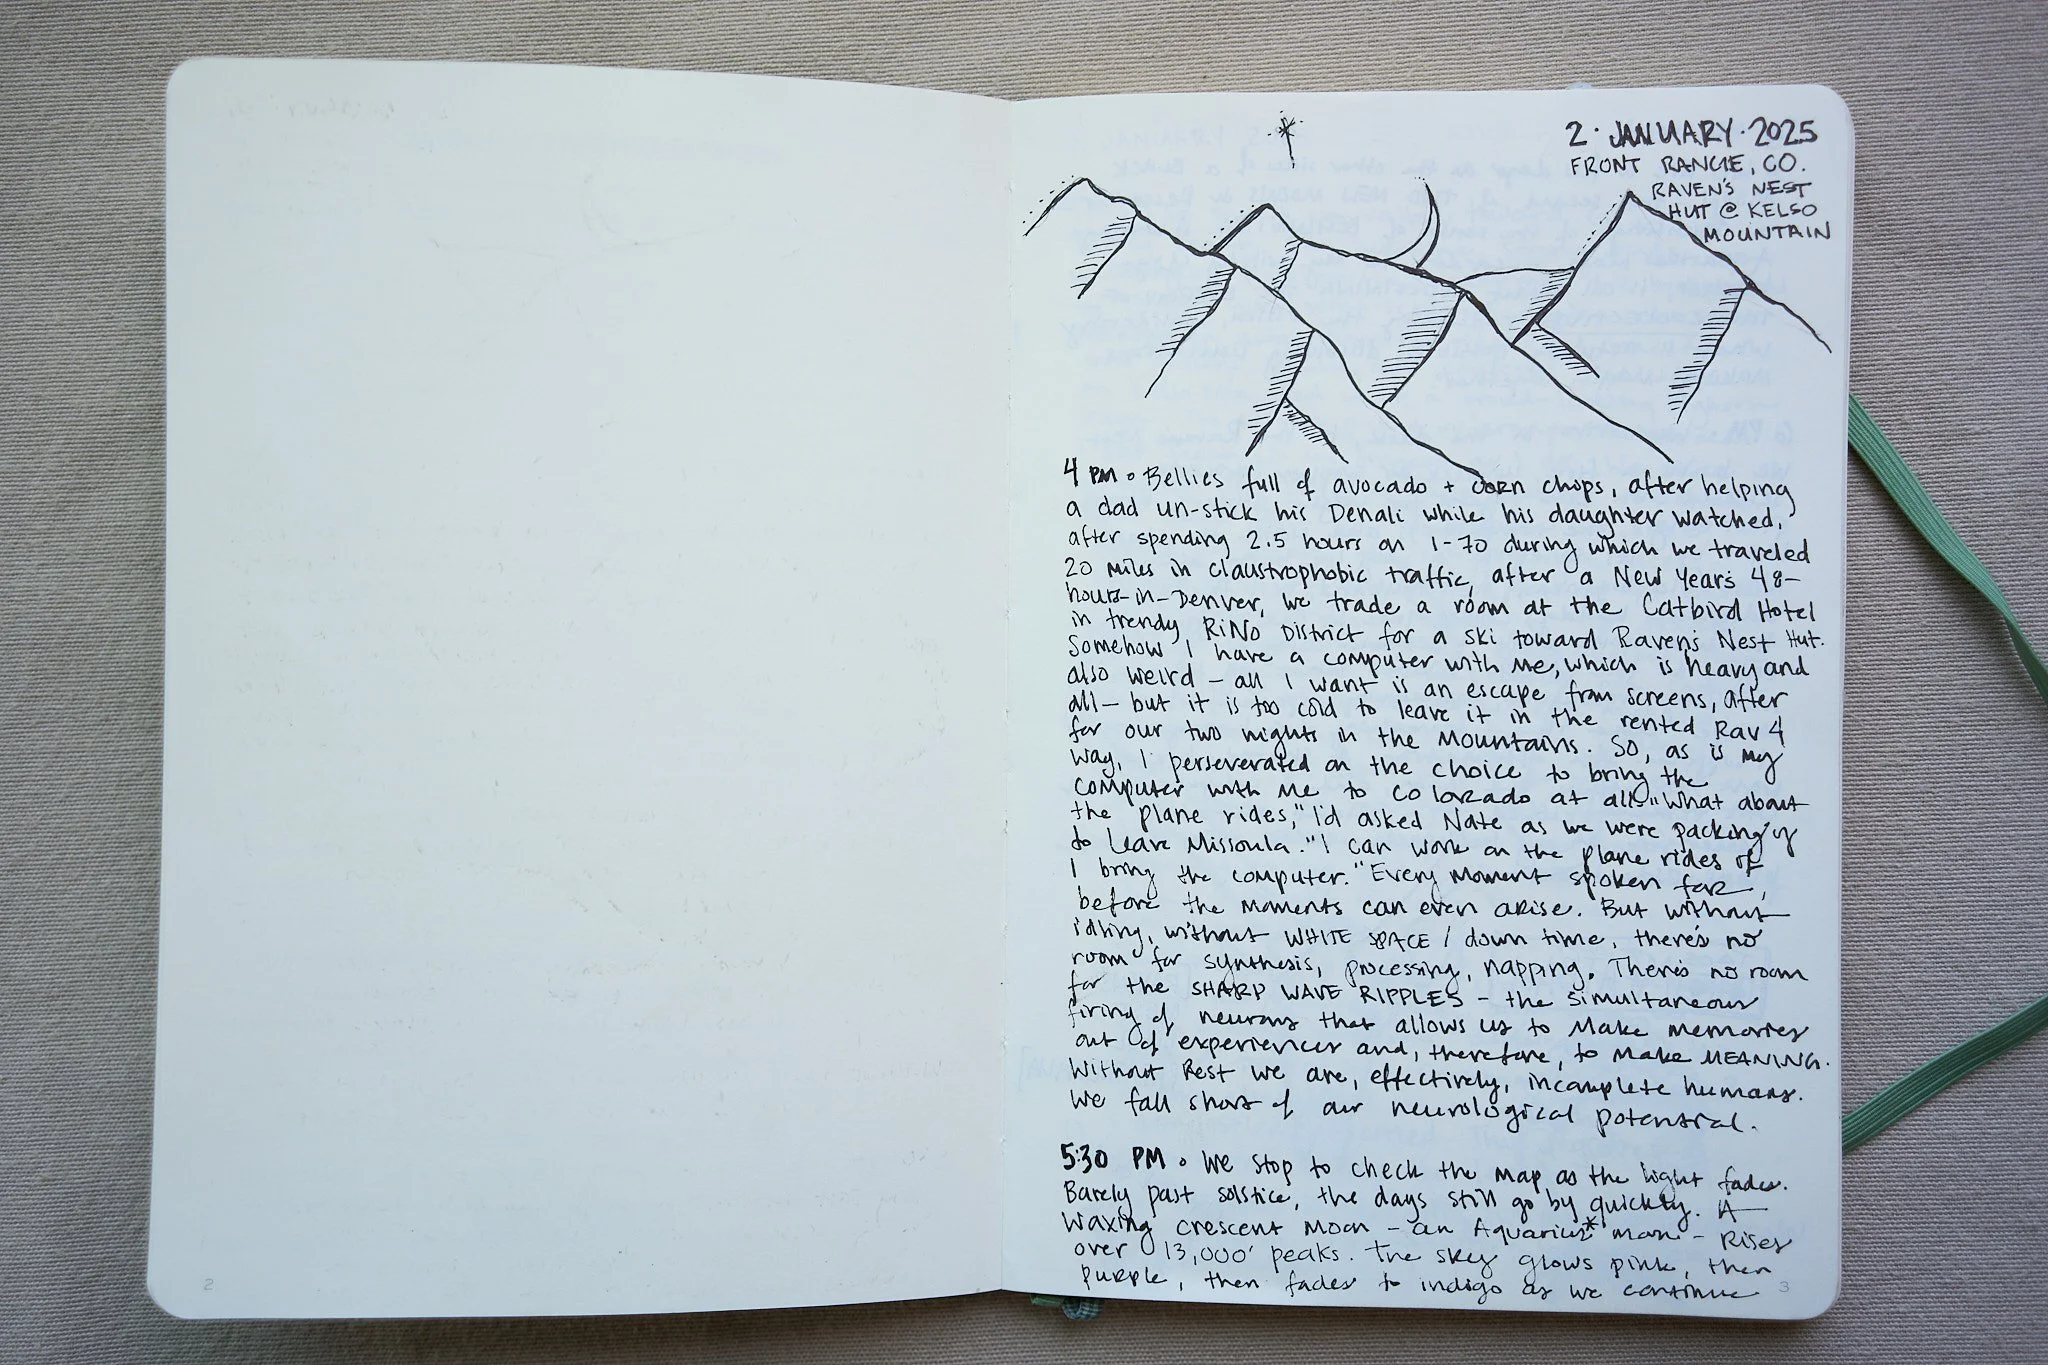 2 · JANUARY · 2025
FRONT RANGE, CO.
RAVEN'S NEST
HUT @ KELSO
MOUNTAIN
4 PM • Bellies full of avocado + corn chips, after helping
a dad un-stick his Denali while his daughter watched,
after spending 2.5 hours on I-70 during which we traveled
20 miles in claustrophobic traffic, after a New Year's 48-
hours-in-Denver, we trade a room at the Catbird Hotel
in trendy RiNo District for a ski toward Raven's Nest Hut.
Somehow I have a computer with me, which is heavy and
also weird – all I want is an escape from screens, after
all – but it is too cold to leave it in the rented Rav 4
for our two nights in the mountains. So, as is my
way, I perseverated on the choice to bring the
computer with me to Colorado at all. "What about
the plane rides," I'd asked Nate as we were packing up
to leave Missoula. "I can work on the plane rides if
I bring the computer." Every moment spoken for,
before the moments can even arise. But without
idling, without WHITE SPACE / down time, there's no
room for synthesis, processing, napping. There's no room
for the SHARP WAVE RIPPLES – the simultaneous
firing of neurons that allows us to make memories
out of experiences and, therefore, to make MEANING.
Without Rest we are, effectively, incomplete humans.
We fall short of our neurological potential.
5:30 PM • We stop to check the map as the light fades.
Barely past solstice, the days still go by quickly. A
waxing crescent moon – an Aquarius* moon – rises
over 13,000' peaks. The sky glows pink, then
purple, then fades to indigo as we continue
2
3